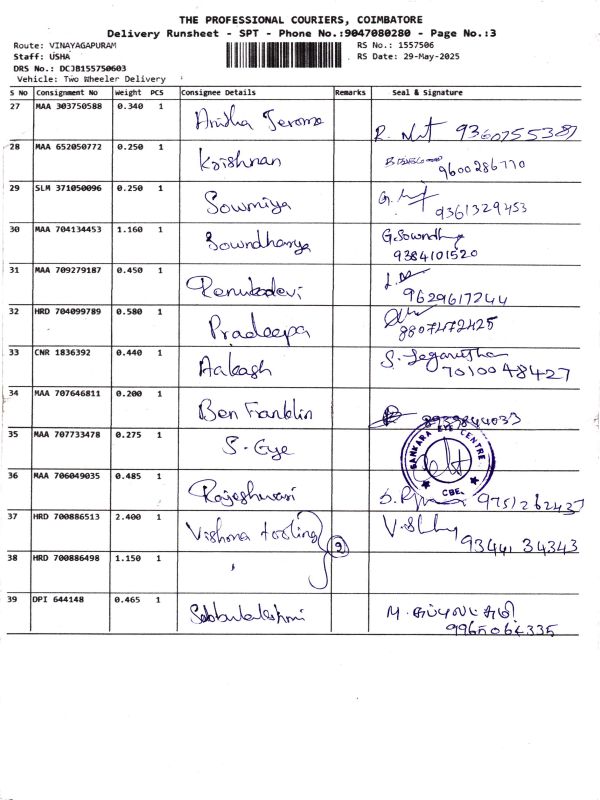 THE PROFESSIONAL COURIERS, COIMBATORE
Delivery Runsheet - SPT - Phone No.:9047080280 - Page No.:3
Route: VINAYAGAPURAM RS No.: 1557506
Staff: USHA RS Date: 29-May-2025
DRS No.: DCJB155750603
Vehicle: Two Wheeler Delivery
S No Consignment No Weight PCS Consignee Details Remarks Seal & Signature
27 MAA 303750588 0.340 1 Anitha Jerome
28 MAA 652050772 0.250 1 Krishnan 9600286770
29 SLM 371050096 0.250 1 Sowmiya 9361329453
30 MAA 704134453 1.160 1 Sowndhanya G.Sowndhy
9384101520
31 MAA 709279187 0.450 1 Renukadevi 9629617244
32 HRD 704099789 0.580 1 Pradeepa 8807472425
33 CNR 1836392 0.440 1 Aakash 7010048427
34 MAA 707646811 0.200 1 Ben Franklin 8939844033
35 MAA 707733478 0.275 1 S-Eye SANKARA EYE CENTRE CBE.
36 MAA 706049035 0.485 1 Rajeshwari 9751262437
37 HRD 700886513 2.400 1 Vishma tooling 2 9344134343
38 HRD 700886498 1.150 1 "
39 DPI 644148 0.465 1 Subbulakshmi M. சுப்புலட்சுமி
9965064335